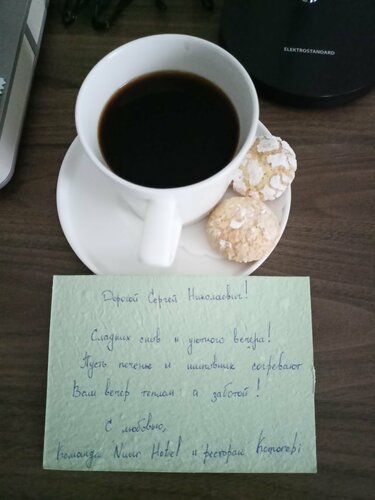 ELEKTROSTANDARD
Дорогой Сергей Николаевич!
Сладких снов и уютного вечера!
Пусть печенье и шиповник согревают
Вам вечер теплом и заботой!
С любовью,
Команда Nuur Hotel и ресторан